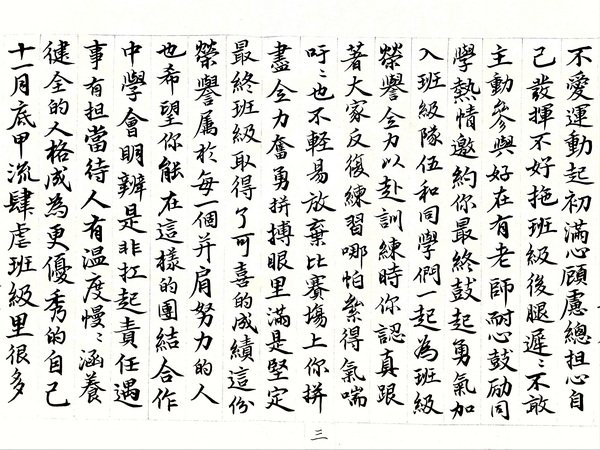 不愛運動起初滿心顧慮總担心自
己發揮不好拖班級後腿遲〻不敢
主動參與好在有老師耐心鼓励同
學熱情邀約你最終鼓起勇氣加
入班級隊伍和同學們一起為班級
榮譽全力以赴訓練時你認真跟
著大家反復練習哪怕累得氣喘
吁〻也不輕易放棄比賽場上你拼
盡全力奮勇拼搏眼里滿是堅定
最終班級取得了可喜的成績這份
榮譽属於每一個并肩努力的人
也希望你能在這樣的團結合作
中學會明辨是非扛起責任遇
事有担當待人有溫度慢〻涵養
健全的人格成為更優秀的自己
十一月底甲流肆虐班級里很多
三